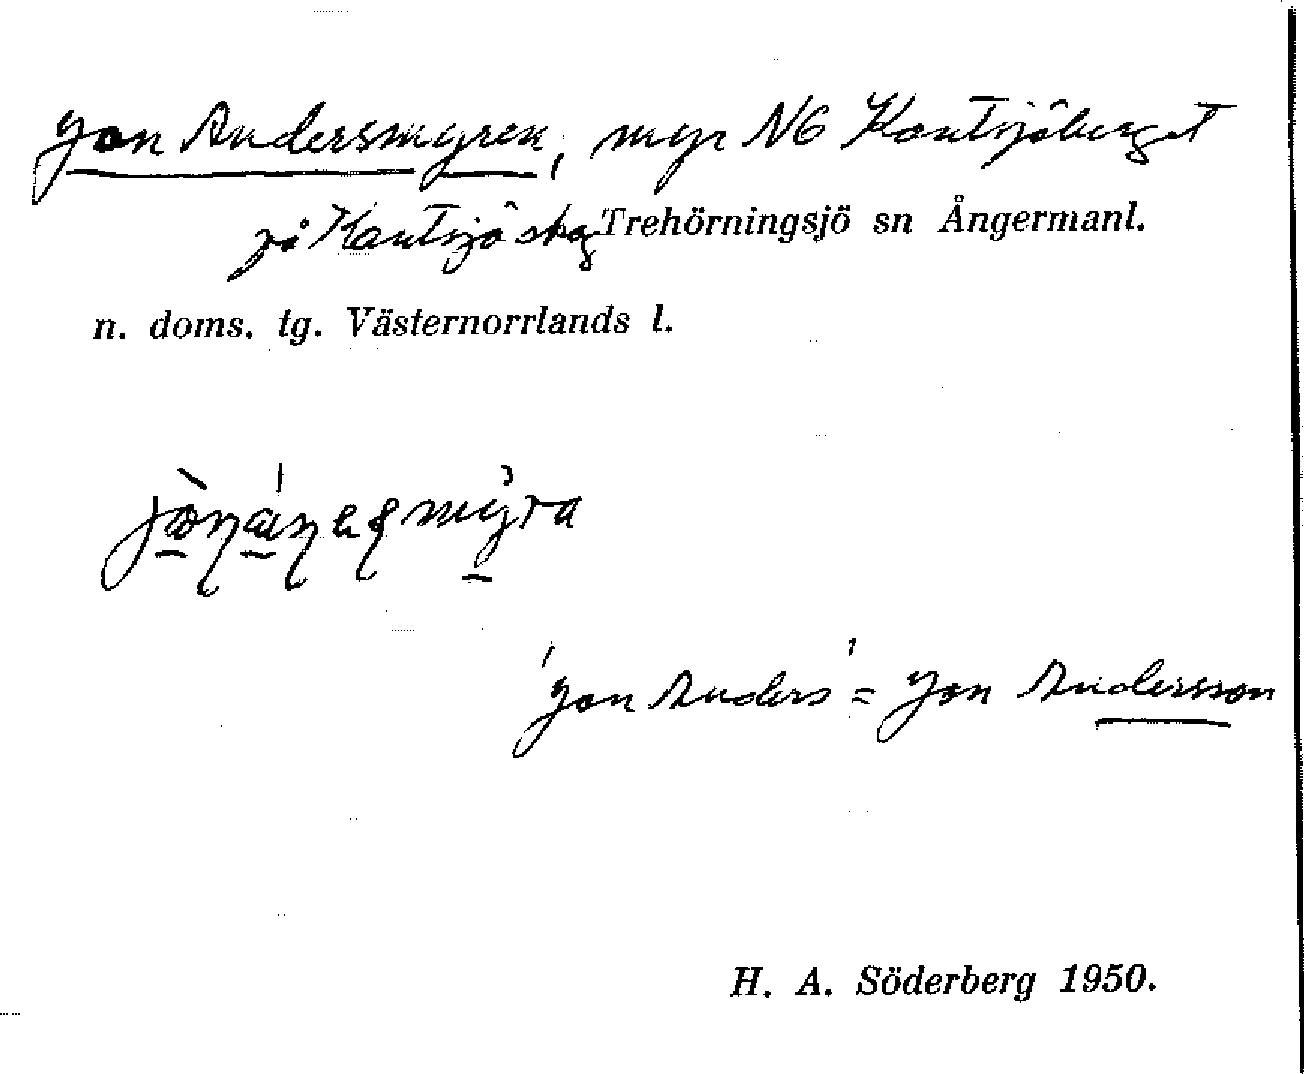 Jon Andersmyren, myr NO Kantsjöberget
på Kantsjö skog Trehörningsjö sn Ångermanl.
n. doms. tg. Västernorrlands l.
'Jon Anders' = Jon Andersson
H. A. Söderberg 1950.